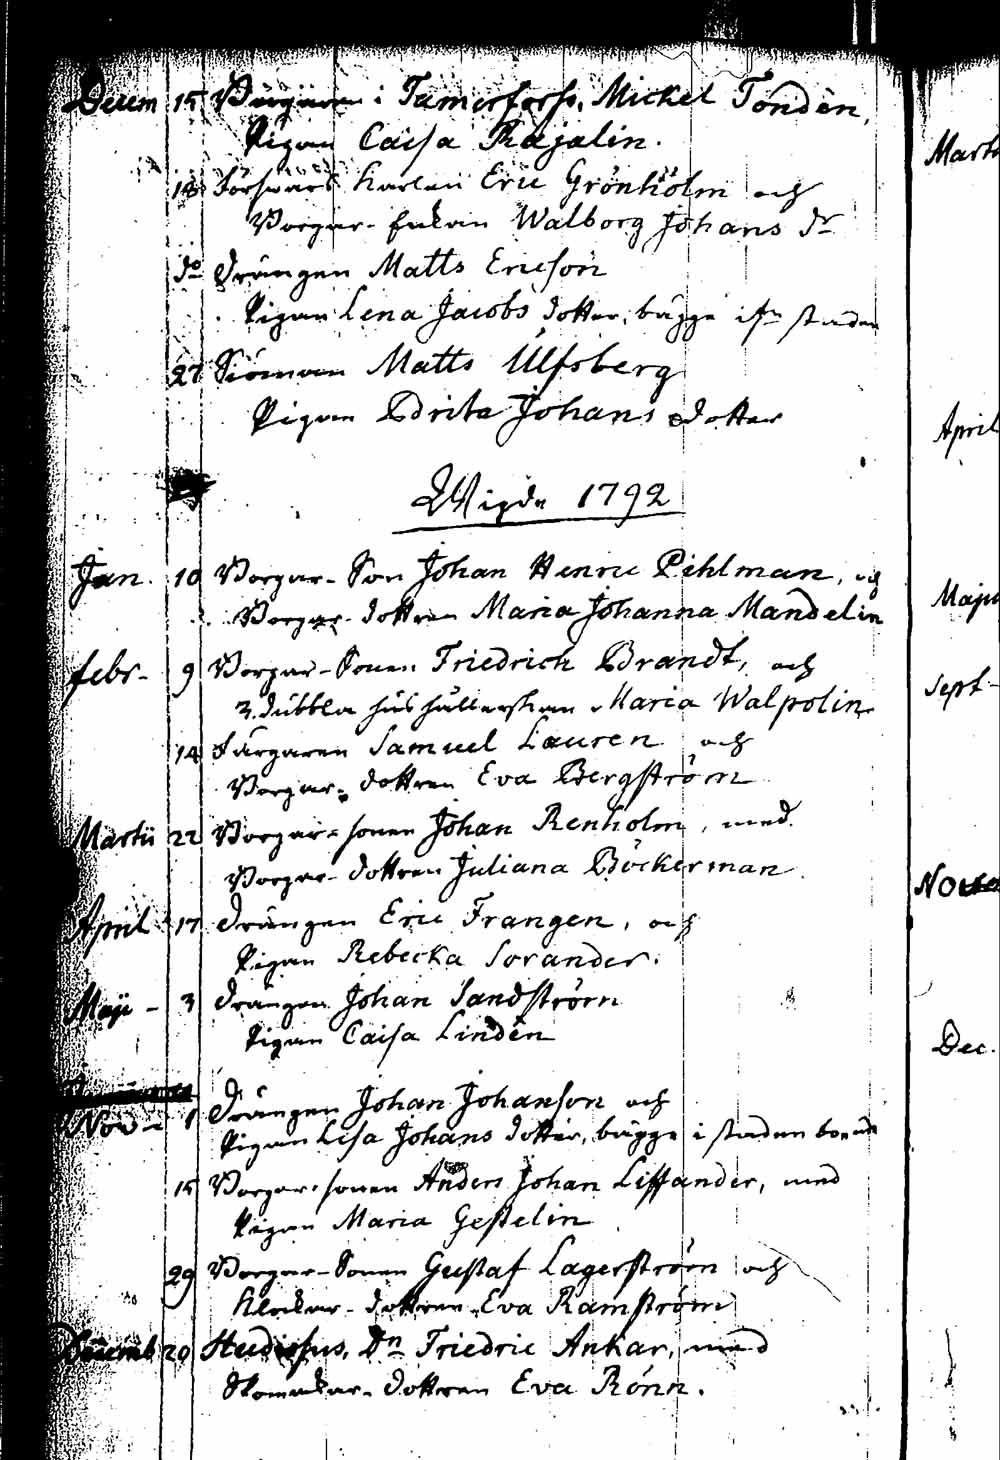 Decem 15 Borgaren i Tamerforss, Mickel Tondên,
Pigan Caisa Rajalin.
18 Försvars Karlen Eric Grönholm och
Borgar-Enkan Walborg Johans dr
do Drängen Matts Ericson
Pigan Lena Jacobs dotter, bägge ifrn staden
27 Siöman Matts Ulfsberg
Pigan Brita Johans dotter
Wigde 1792
Jan. 10 Borgar-Son Johan Henric Pihlman, och
Borgar-dottren Maria Johanna Mandelin
febr- 9 Borgar-Sonen Friedrich Brandt, och
hushållerskan Maria Walpolin
14 Färgaren Samuel Lauren och
Borgar-dottren Eva Bergström
Martii 22 Borgar-sonen Johan Renholm, med
Borgar-dottren Juliana Böckerman
April 17 Drängen Eric Frangen, och
Pigan Rebecka Sorander.
Maji - 3 Drängen Johan Sandström
Pigan Caisa Lindên
Nov - 1 Drängen Johan Johanson och
Pigan Lisa Johans dotter, bägge i staden boende
15 Borgar-sonen Anders Johan Lissander, med
Pigan Maria Gestelin
29 Borgar-Sonen Gustaf Lagerström och
Klockar-dottren Eva Ramström
Decemb 20 Studiosus, Dn Friedric Ankar, med
Skomakar-dottren Eva Rönn.
Mart
April
Maju
Sept-
Nov
Dec.